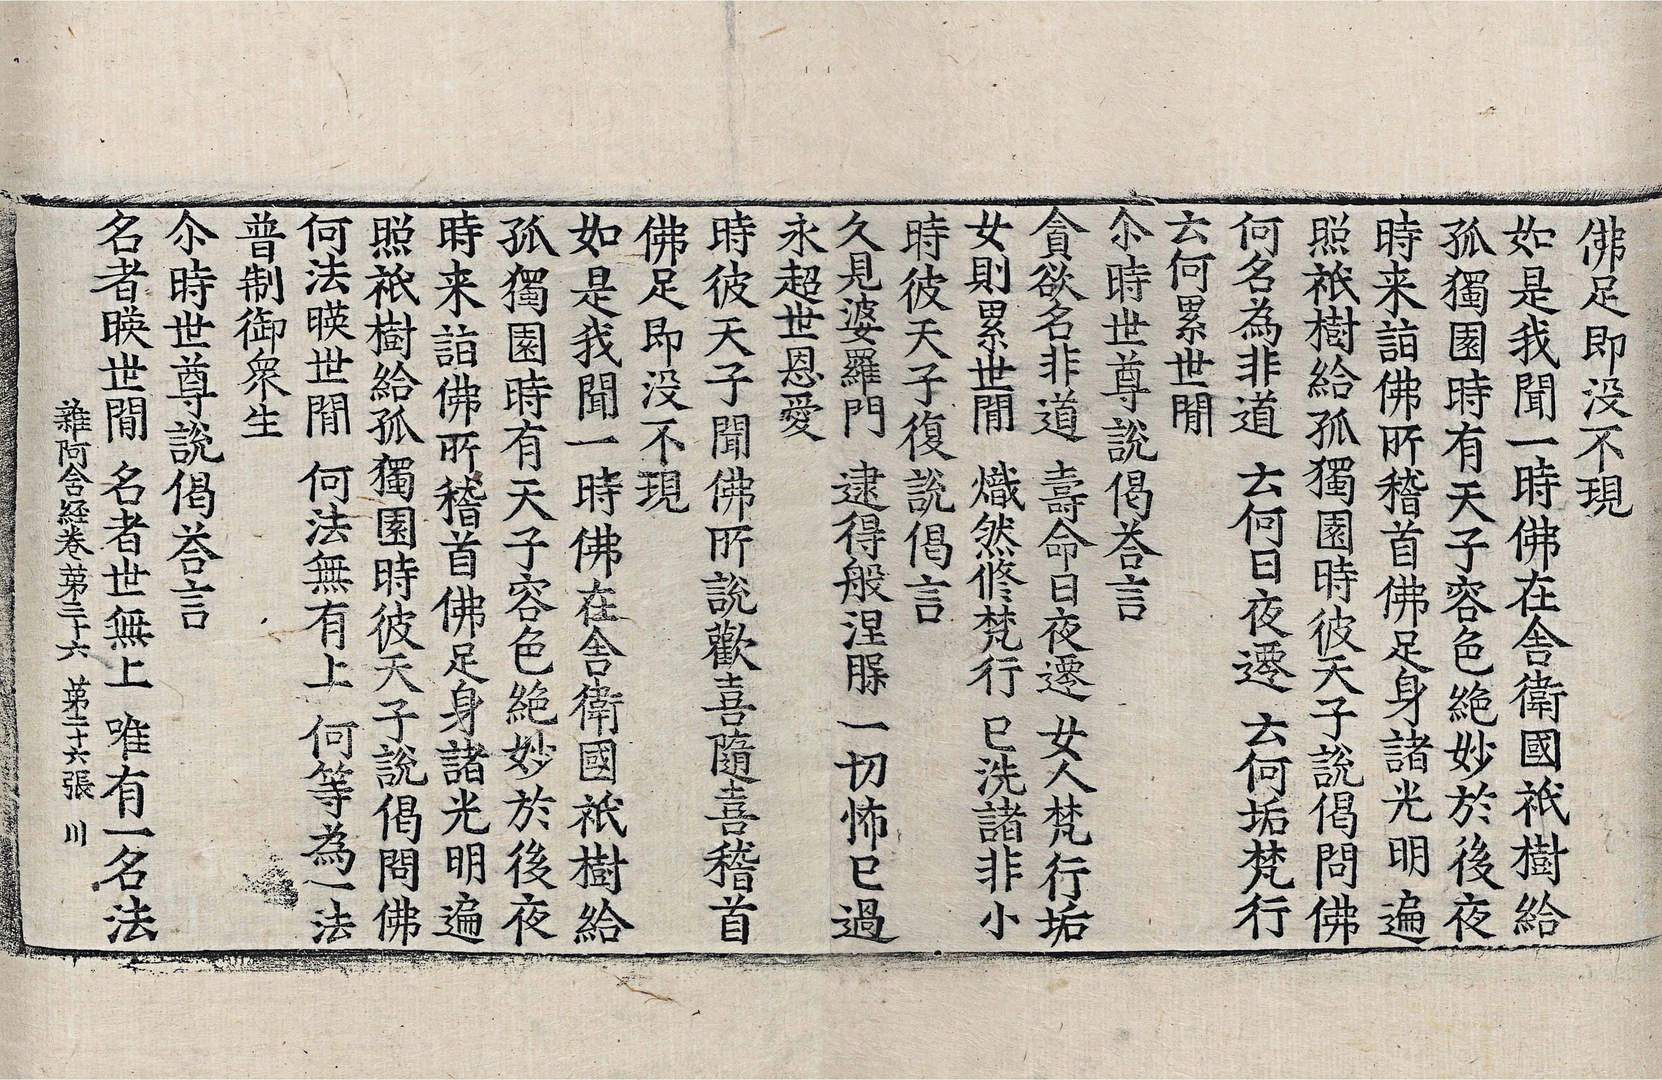 佛足即没不現
如是我聞一時佛在舍衛國祇樹給
孤獨園時有天子容色絶妙於後夜
時来詣佛所稽首佛足身諸光明遍
照祇樹給孤獨園時彼天子說偈問佛
何名為非道 云何日夜遷 云何垢梵行
云何累世閒
尒時世尊說偈荅言
貪欲名非道 壽命日夜遷 女人梵行垢
女則累世閒 熾然修梵行 已洗諸非小
時彼天子復說偈言
久見婆羅門 逮得般涅槃 一切怖已過
永超世恩愛
時彼天子聞佛所說歡喜隨喜稽首
佛足即没不現
如是我聞一時佛在舍衛國祇樹給
孤獨園時有天子容色絶妙於後夜
時来詣佛所稽首佛足身諸光明遍
照祇樹給孤獨園時彼天子說偈問佛
何法暎世閒 何法無有上 何等為一法
普制御衆生
尒時世尊說偈荅言
名者暎世閒 名者世無上 唯有一名法
雜阿含経卷苐三十六 苐二十六張 川